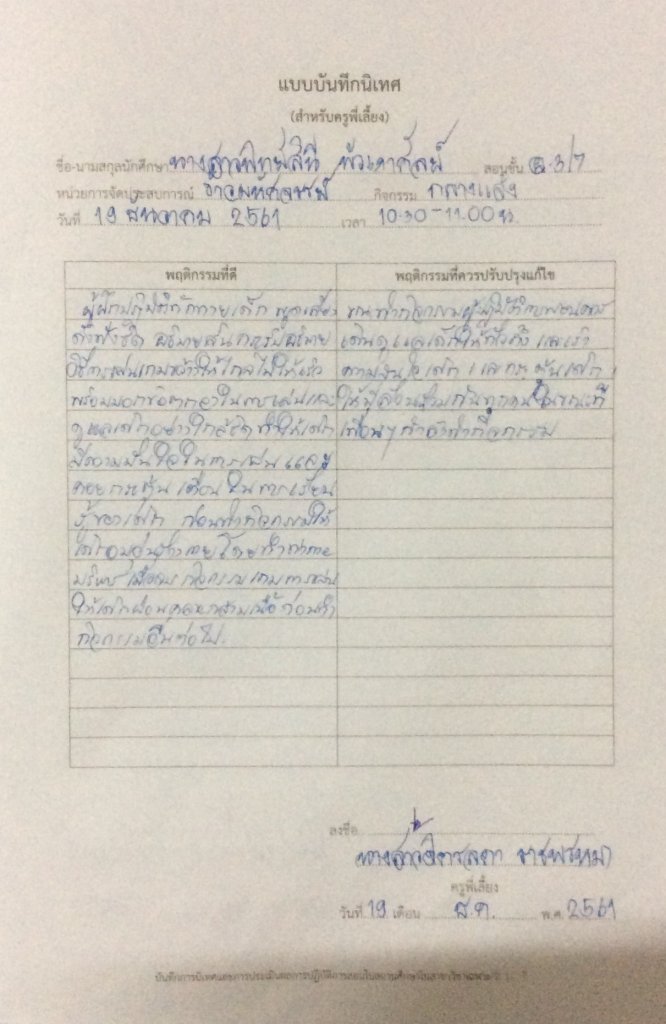 แบบบันทึกนิเทศ
(สำหรับครูพี่เลี้ยง)
ชื่อ-นามสกุลนักศึกษา นางสาว สอนชั้น อ.3/7
หน่วยการจัดประสบการณ์ กิจกรรม กลางแจ้ง
วันที่ 19 สิงหาคม 2561 เวลา 10.30-11.00 น
พฤติกรรมที่ดี
ทักทายเด็ก พูดเสียง
ดังฟังชัด อธิบาย
วิธีการเล่นเกม
พร้อมบอกข้อตกลงในการเล่นและ
ดูแลเด็กอย่างใกล้ชิดทำให้เด็ก
มีความมั่นใจในการเล่น และ
คอยกระตุ้นเตือนในการเรียน
รู้ของเด็ก ก่อนทำกิจกรรมให้
เด็กอบอุ่นร่างกายโดยทำท่ากาย
บริหาร เมื่อจบกิจกรรมเกมการเล่น
ให้เด็กผ่อนคลายกล้ามเนื้อก่อนทำ
กิจกรรมอื่นต่อไป.
พฤติกรรมที่ควรปรับปรุงแก้ไข
ขณะทำกิจกรรม
เดินดูแลเด็กให้ทั่วถึง และเร้า
ความสนใจเด็ก และกระตุ้นเด็ก
ให้มีส่วนร่วมกันทุกคนในขณะที่
เพื่อนๆกำลังทำกิจกรรม
ลงชื่อ
นางสาว
ครูพี่เลี้ยง
วันที่ 19 เดือน ส.ค. พ.ศ. 2561
บันทึกการนิเทศและการประเมินผลการปฏิบัติการสอนในสถานศึกษา